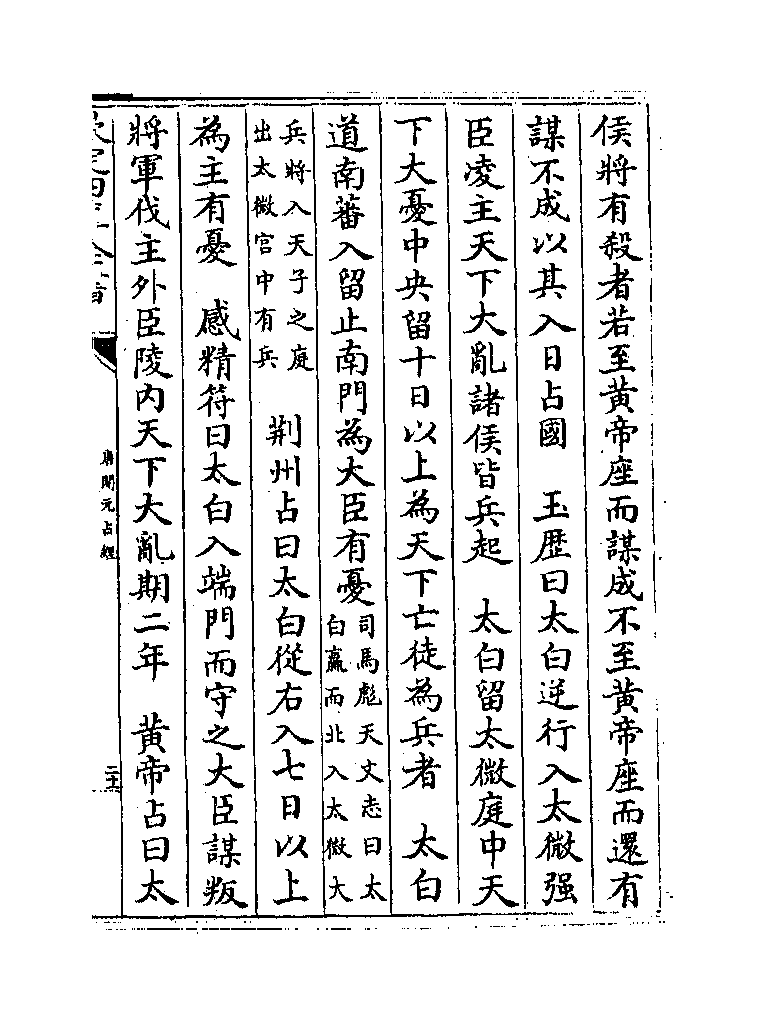 侯將有殺者若至黄帝座而謀成不至黄帝座而還有
謀不成以其入日占國　玉歴曰太白逆行入太微强
臣凌主天下大亂諸侯皆兵起　太白留太微庭中天
下大憂中央留十日以上為天下亡徒為兵者　太白
道南蕃入留止南門為大臣有憂司馬彪天文志曰太
白羸而北入太微大
兵將入天子之庭
出太微宫中有兵　荆州占曰太白從右入七日以上
為主有憂　感精符曰太白入端門而守之大臣謀叛
將軍伐主外臣陵内天下大亂期二年　黄帝占曰太
唐開元占經